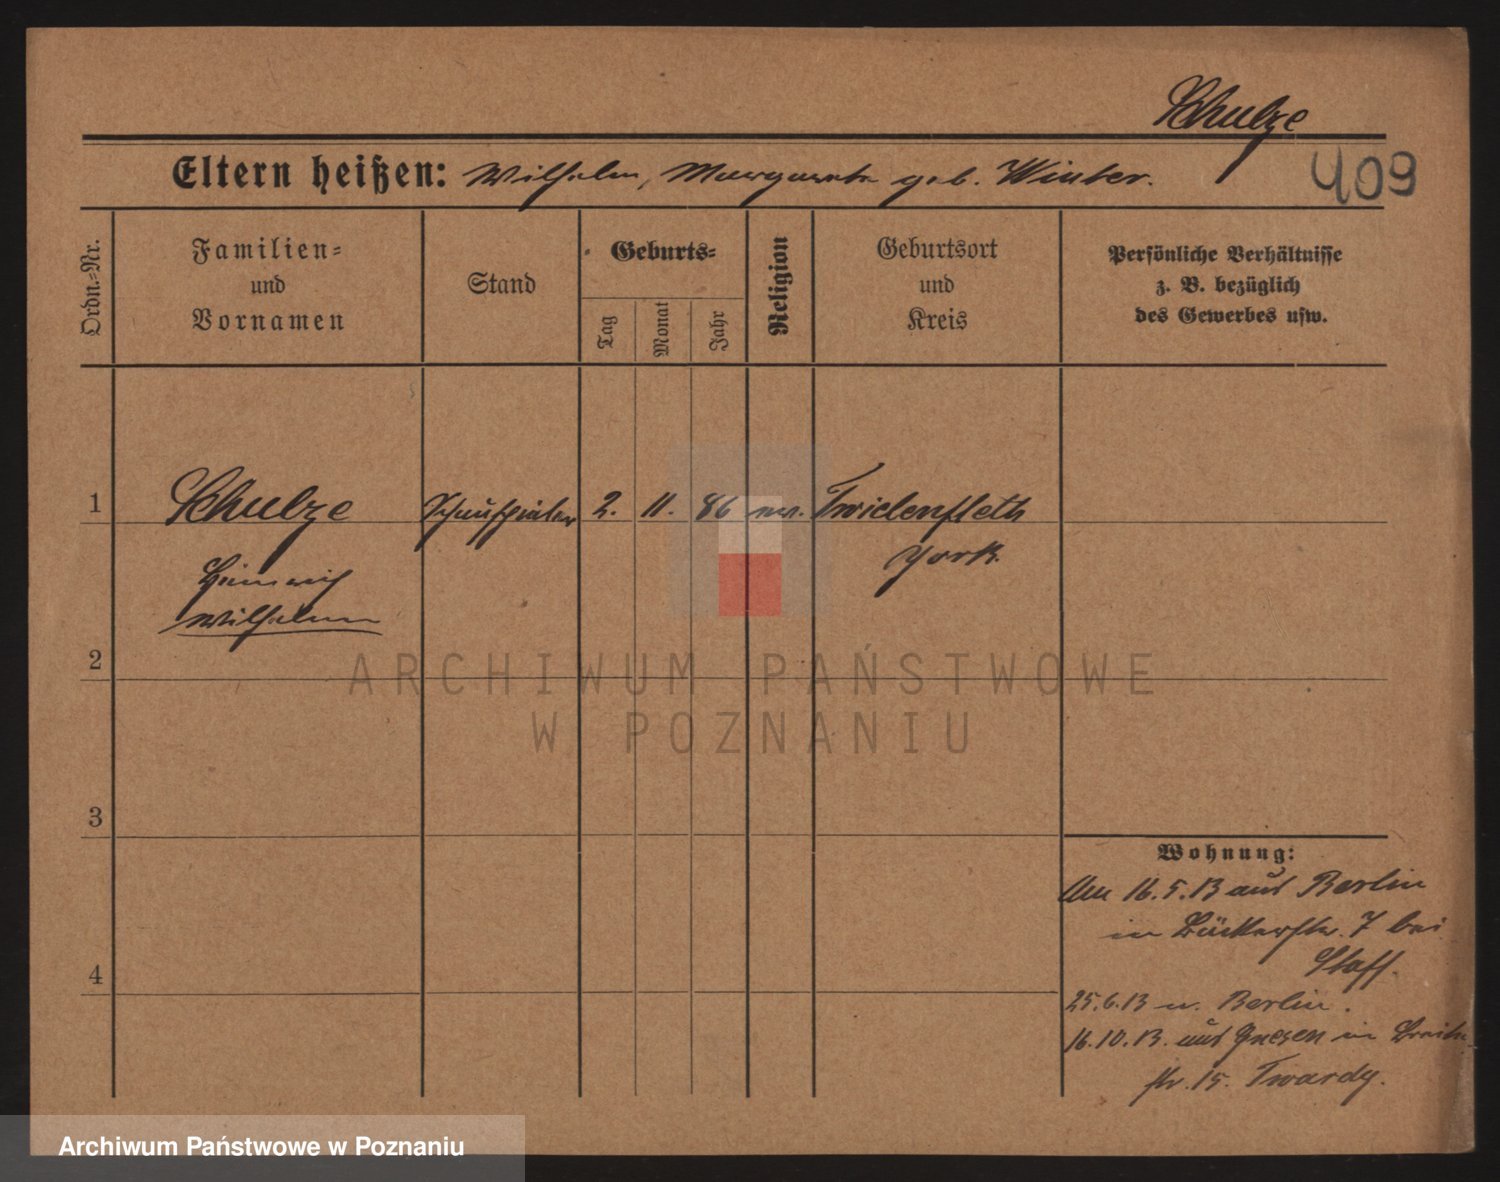 Schulze
Eltern heißen: Wilhelm, Margarete geb. Winter.
409
Ordn.=Nr.
Familien=
und
Vornamen
Stand
Geburts=
Tag
Monat
Jahr
Religion
Geburtsort
und
Kreis
Persönliche Verhältnisse
z. B. bezüglich
des Gewerbes usw.
1
Schulze
Schauspieler
2.
11.
86
ev.
Twielenfleth
York.
Heinrich
Wilhelm
2
ARCHIWUM PAŃSTWOWE
W POZNANIU
3
4
Wohnung:
Am 16.5.13 aus Berlin
in Bäckerstr. 7 bei
Staff.
25.6.13 n. Berlin.
16.10.13. aus Gnesen in Breite
str. 15. Twardy.
Archiwum Państwowe w Poznaniu